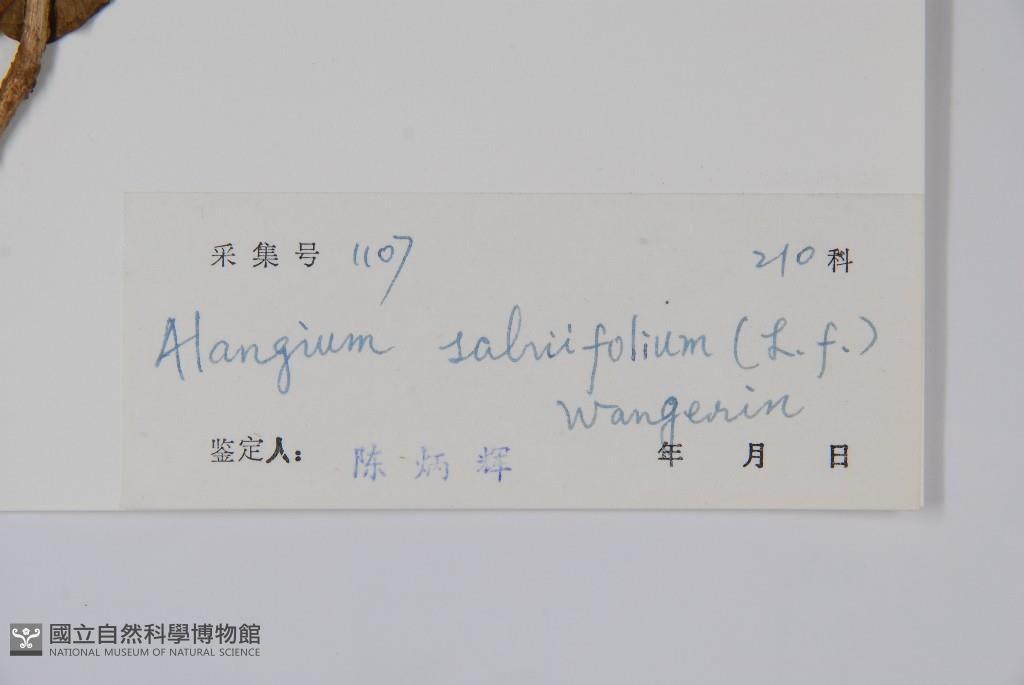 采集号 1107 210 科
Alangium salviifolium (L.f.)
Wangerin
鉴定人： 陈炳辉 年 月 日
國立自然科學博物館
NATIONAL MUSEUM OF NATURAL SCIENCE